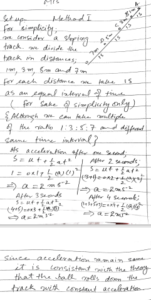 Set up. Method I
For simplicity
we consider a sloping
track. We divide the
track in distances,
1m, 3m, 5m and 7m
For each distance we take 1s
as an equal interval of time
( For sake of simplicity only )
{ Although we can take multiple
of the ratio 1:3:5:7 and different
same time interval }
As acceleration after one second,
S = ut + ½at²
1 = 0×1 + ½(a)(1)²
⇒ a = 2 ms⁻²
After 2 seconds,
S = ut + ½at²
⇒ a = 2ms⁻²
After 3 seconds
S = ut + ½at²
⇒ a = 2ms⁻²
After 4 seconds
⇒ a = 2ms⁻²
Since acceleration remain same
it is consistent with the theory
that the ball rolls down the
track with constant acceleration